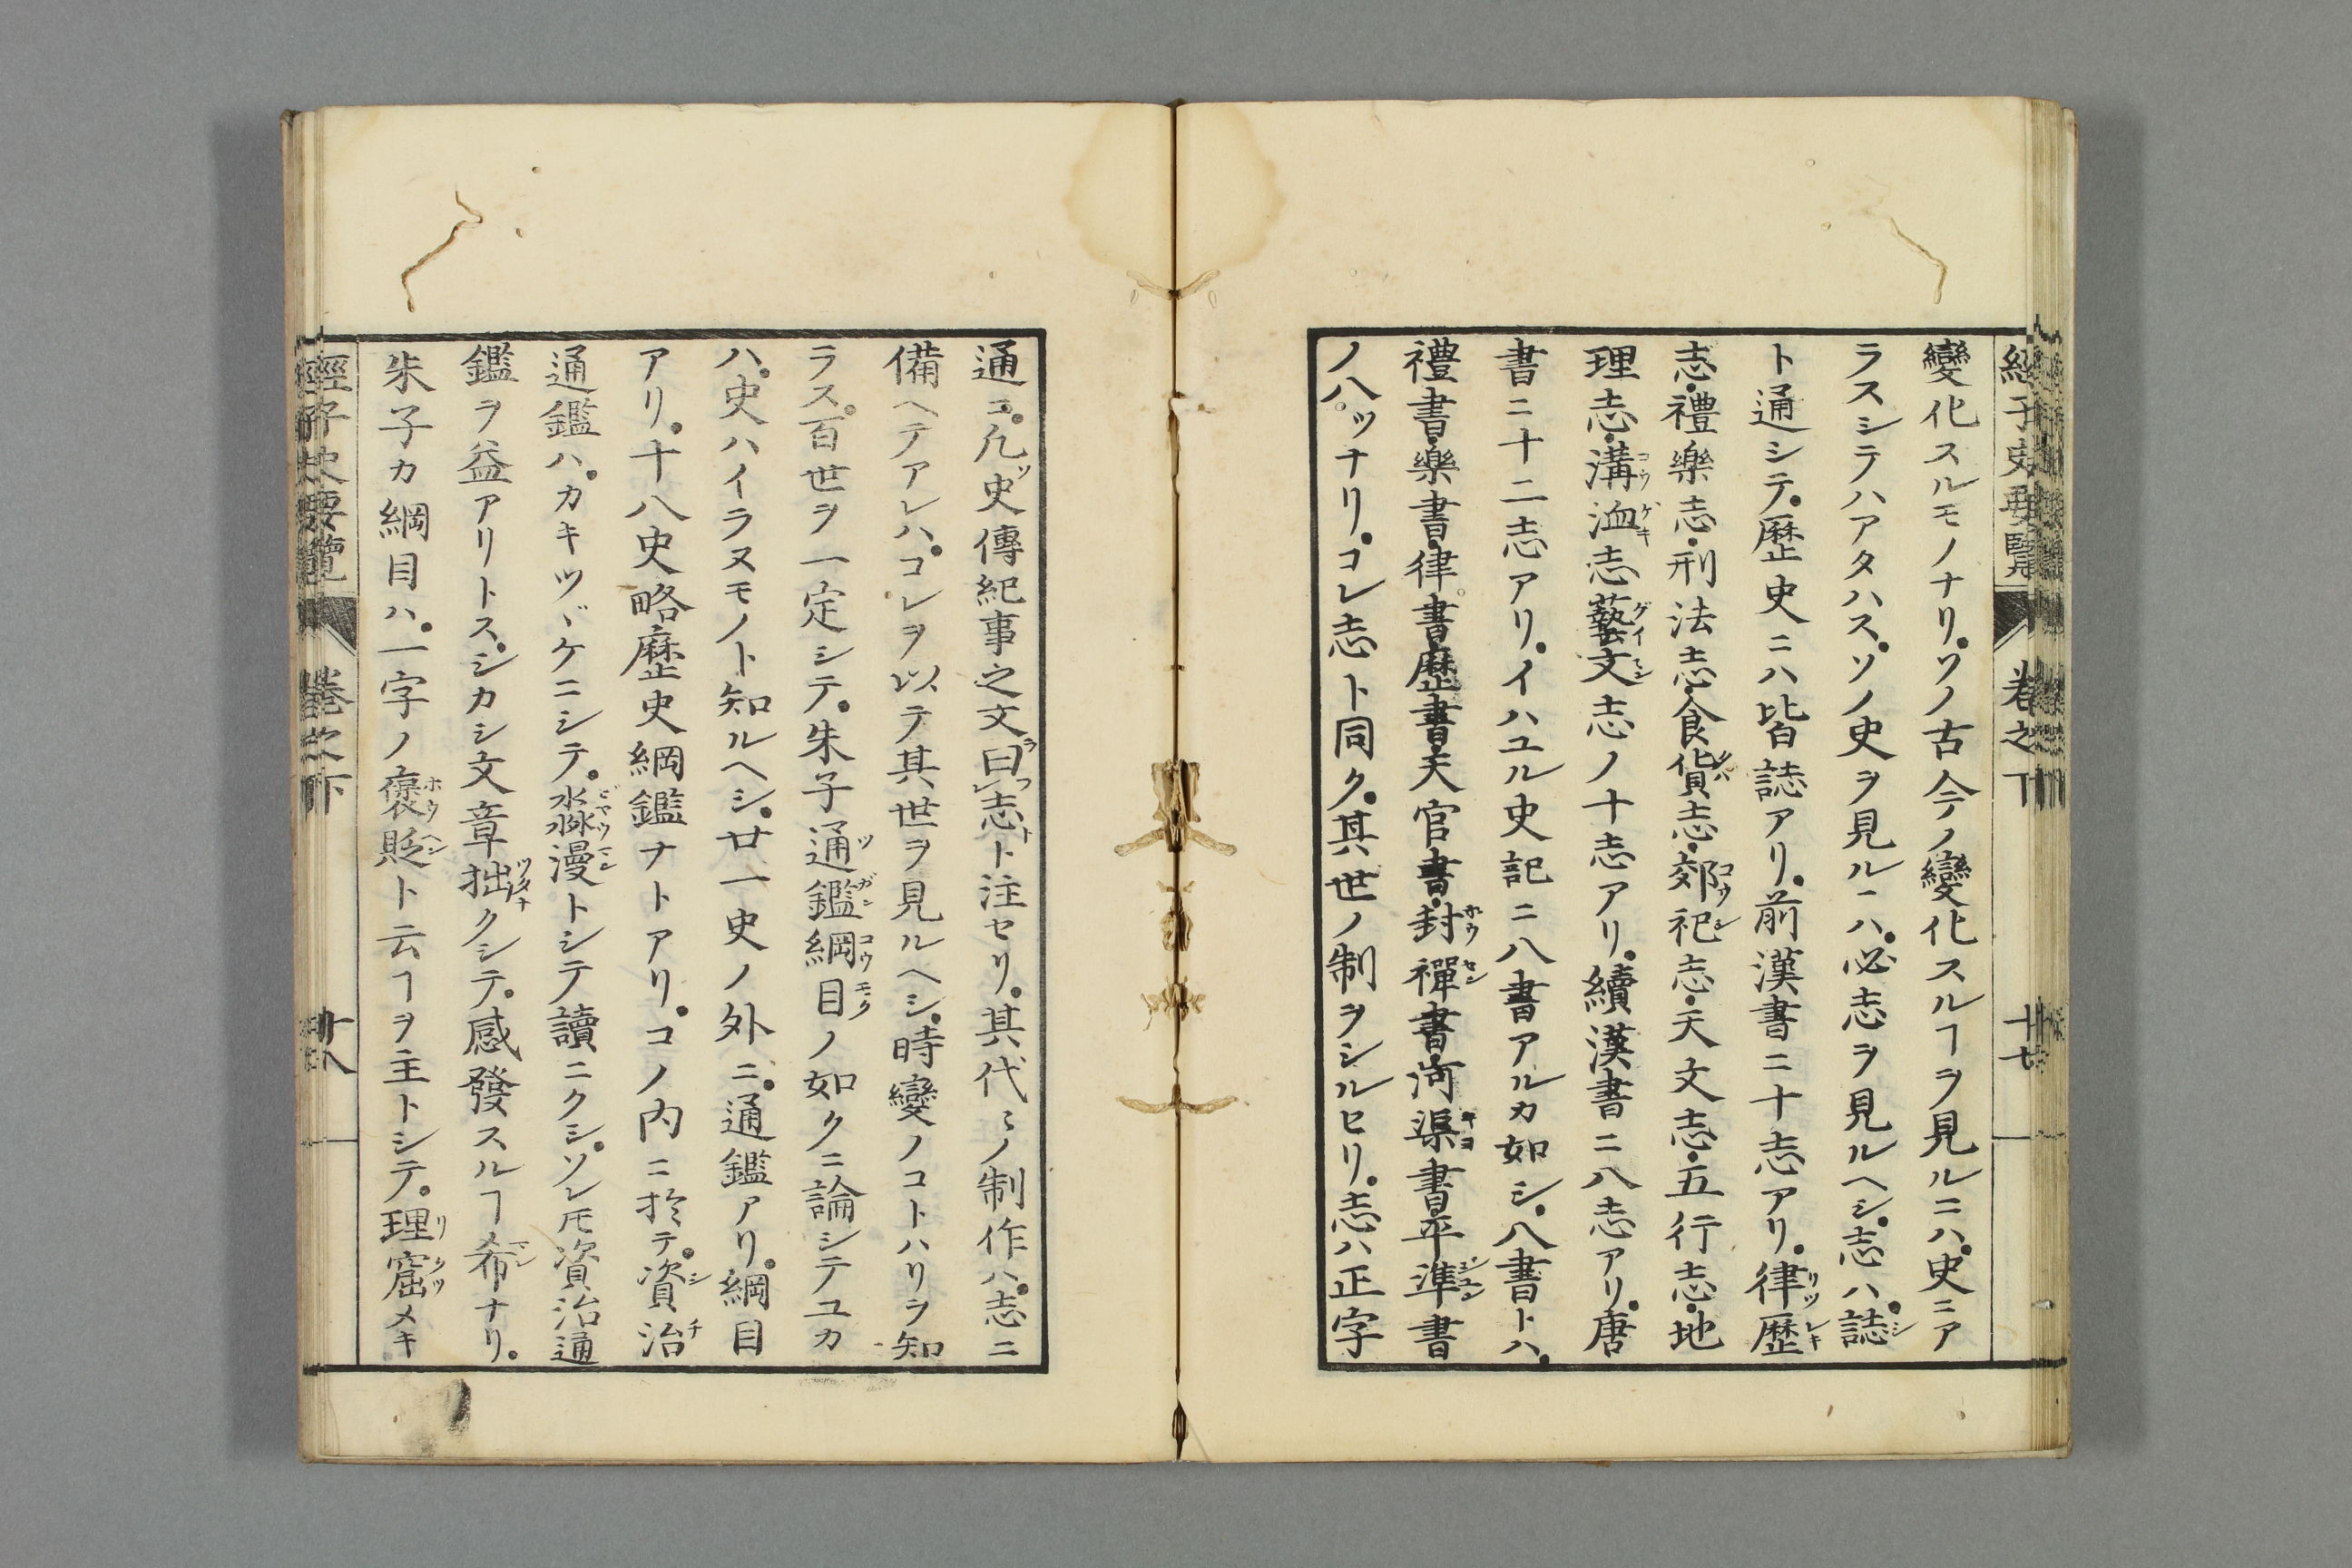 經子史要覽 卷之下 十七
變化スルモノナリ。ソノ古今ノ變化スルヿヲ見ルニハ。史ニア
ラスシテハアタハス。ソノ史ヲ見ルニハ。必志ヲ見ルヘシ。志ハ。誌
ト通シテ。歴史ニハ皆誌アリ。前漢書ニ十志アリ。律歴
志・禮樂志・刑法志・食貨志・郊祀志・天文志・五行志・地
理志・溝洫志・藝文志ノ十志アリ。續漢書ニ八志アリ。唐
書ニ十二志アリ。イハユル史記ニ八書アルカ如シ。八書トハ。
禮書・樂書・律書・歴書・天官書・封禪書・河渠書・平準書
ノ八ツナリ。コレ志ト同ク。其世ノ制ヲシルセリ。志ハ正字
通ニ。凡史傳紀事之文曰志ト注セリ。其代〻ノ制作ハ。志ニ
備ヘテアレハ。コレヲ以テ其世ヲ見ルヘシ。時變ノコトハリヲ知
ラス。百世ヲ一定シテ。朱子通鑑綱目ノ如クニ論シテユカ
ハ。史ハイラヌモノト知ルヘシ。廿一史ノ外ニ。通鑑アリ。綱目
アリ。十八史略歴史綱鑑ナトアリ。コノ内ニ於テ。資治
通鑑ハ。カキツヾケニシテ。淼漫トシテ讀ニクシ。ソレモ資治通
鑑ヲ益アリトス。シカシ文章拙クシテ。感發スルヿ希ナリ。
朱子カ綱目ハ。一字ノ褒貶ト云ヿヲ主トシテ。理窟メキ
經子史要覽 卷之下 十八